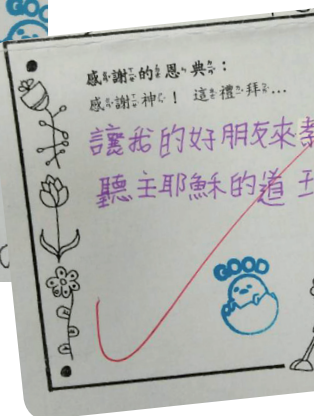 感謝的恩典：
感謝神！ 這禮拜...
讓我的好朋友來
聽主耶穌的道
GOOD